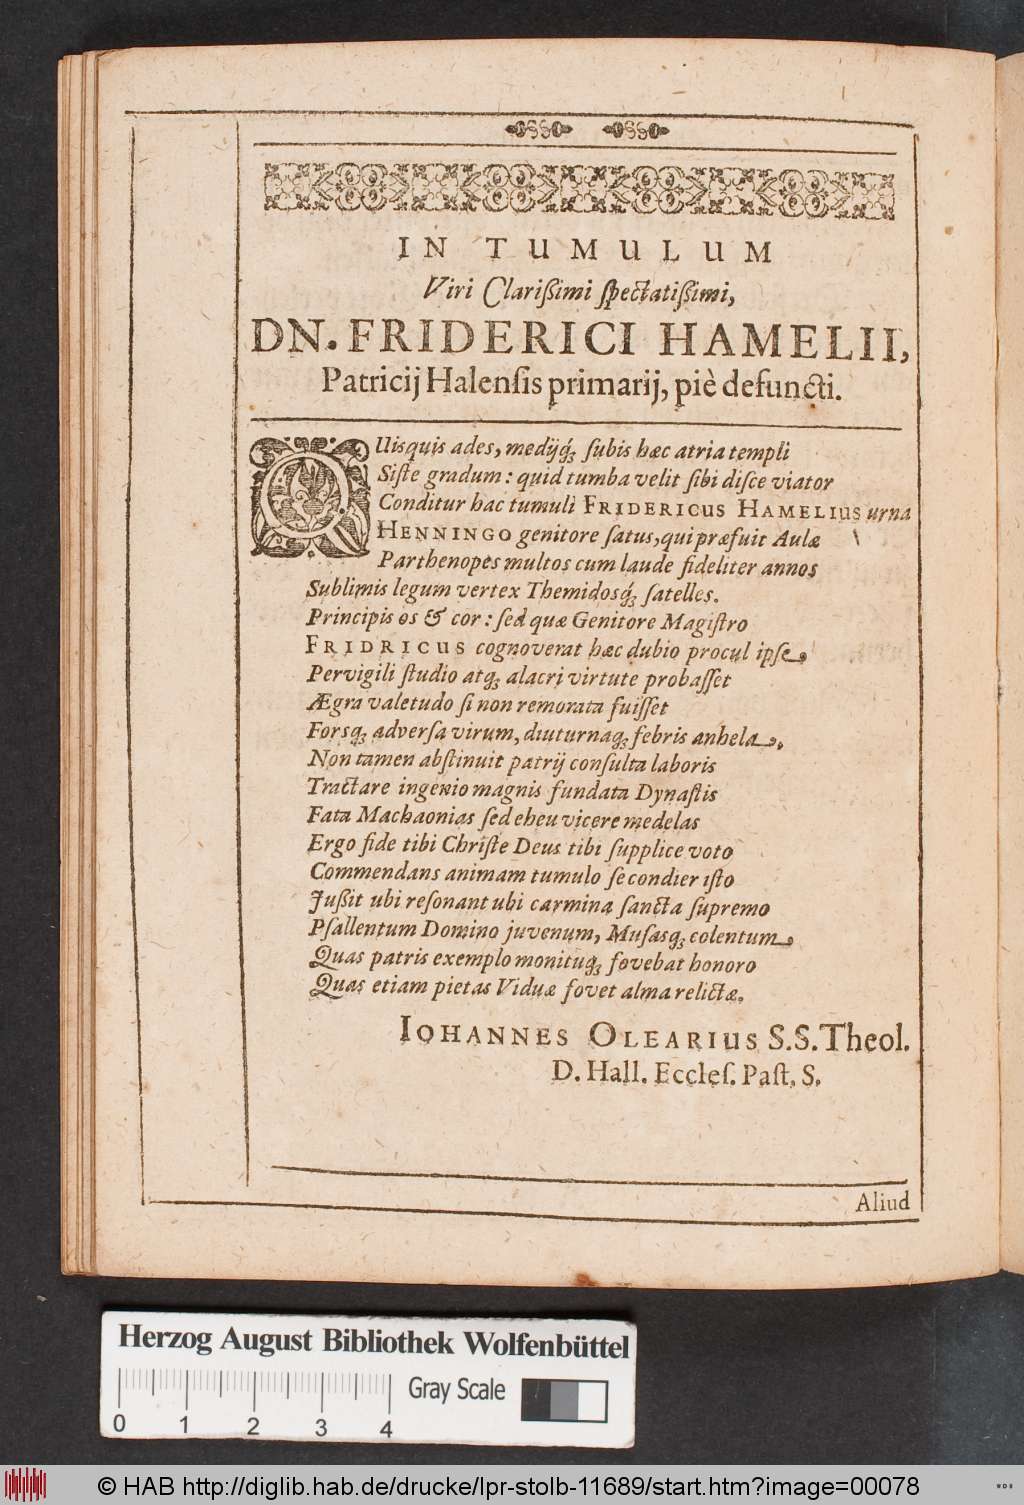 IN TUMULUM
Viri Clarißimi spectatißimi,
DN. FRIDERICI HAMELII,
Patricij Halenſis primarij, piè defuncti.
QUisquis ades, medijq́ꝫ ſubis hæc atria templi
Siſte gradum: quid tumba velit ſibi diſce viator
Conditur hac tumuli FRIDERICUS HAMELIUS urna
HENNINGO genitore ſatus, qui præfuit Aulæ
Parthenopes multos cum laude fideliter annos
Sublimis legum vertex Themidosq́ꝫ ſatelles.
Principis os & cor: ſed quæ Genitore Magiſtro
FRIDRICUS cognoverat hæc dubio procul ipſe,
Pervigili ſtudio atqꝫ alacri virtute probaſſet
Ægra valetudo ſi non remorata fuiſſet
Forsqꝫ adverſa virum, diuturnaqꝫ febris anhela,
Non tamen abſtinuit patrij conſulta laboris
Tractare ingenio magnis fundata Dynaſtis
Fata Machaonias ſed eheu vicere medelas
Ergo fide tibi Chriſte Deus tibi ſupplice voto
Commendans animam tumulo ſe condier iſto
Jußit ubi reſonant ubi carmina ſancta ſupremo
Pſallentum Domino juvenum, Muſasqꝫ colentum,
Quas patris exemplo monituqꝫ fovebat honoro
Quas etiam pietas Viduæ fovet alma relictæ.
IOHANNES OLEARIUS S.S. Theol.
D. Hall. Eccleſ. Paſt. S.
Aliud
Herzog August Bibliothek Wolfenbüttel
Gray Scale
0 1 2 3 4
© HAB http://diglib.hab.de/drucke/lpr-stolb-11689/start.htm?image=00078